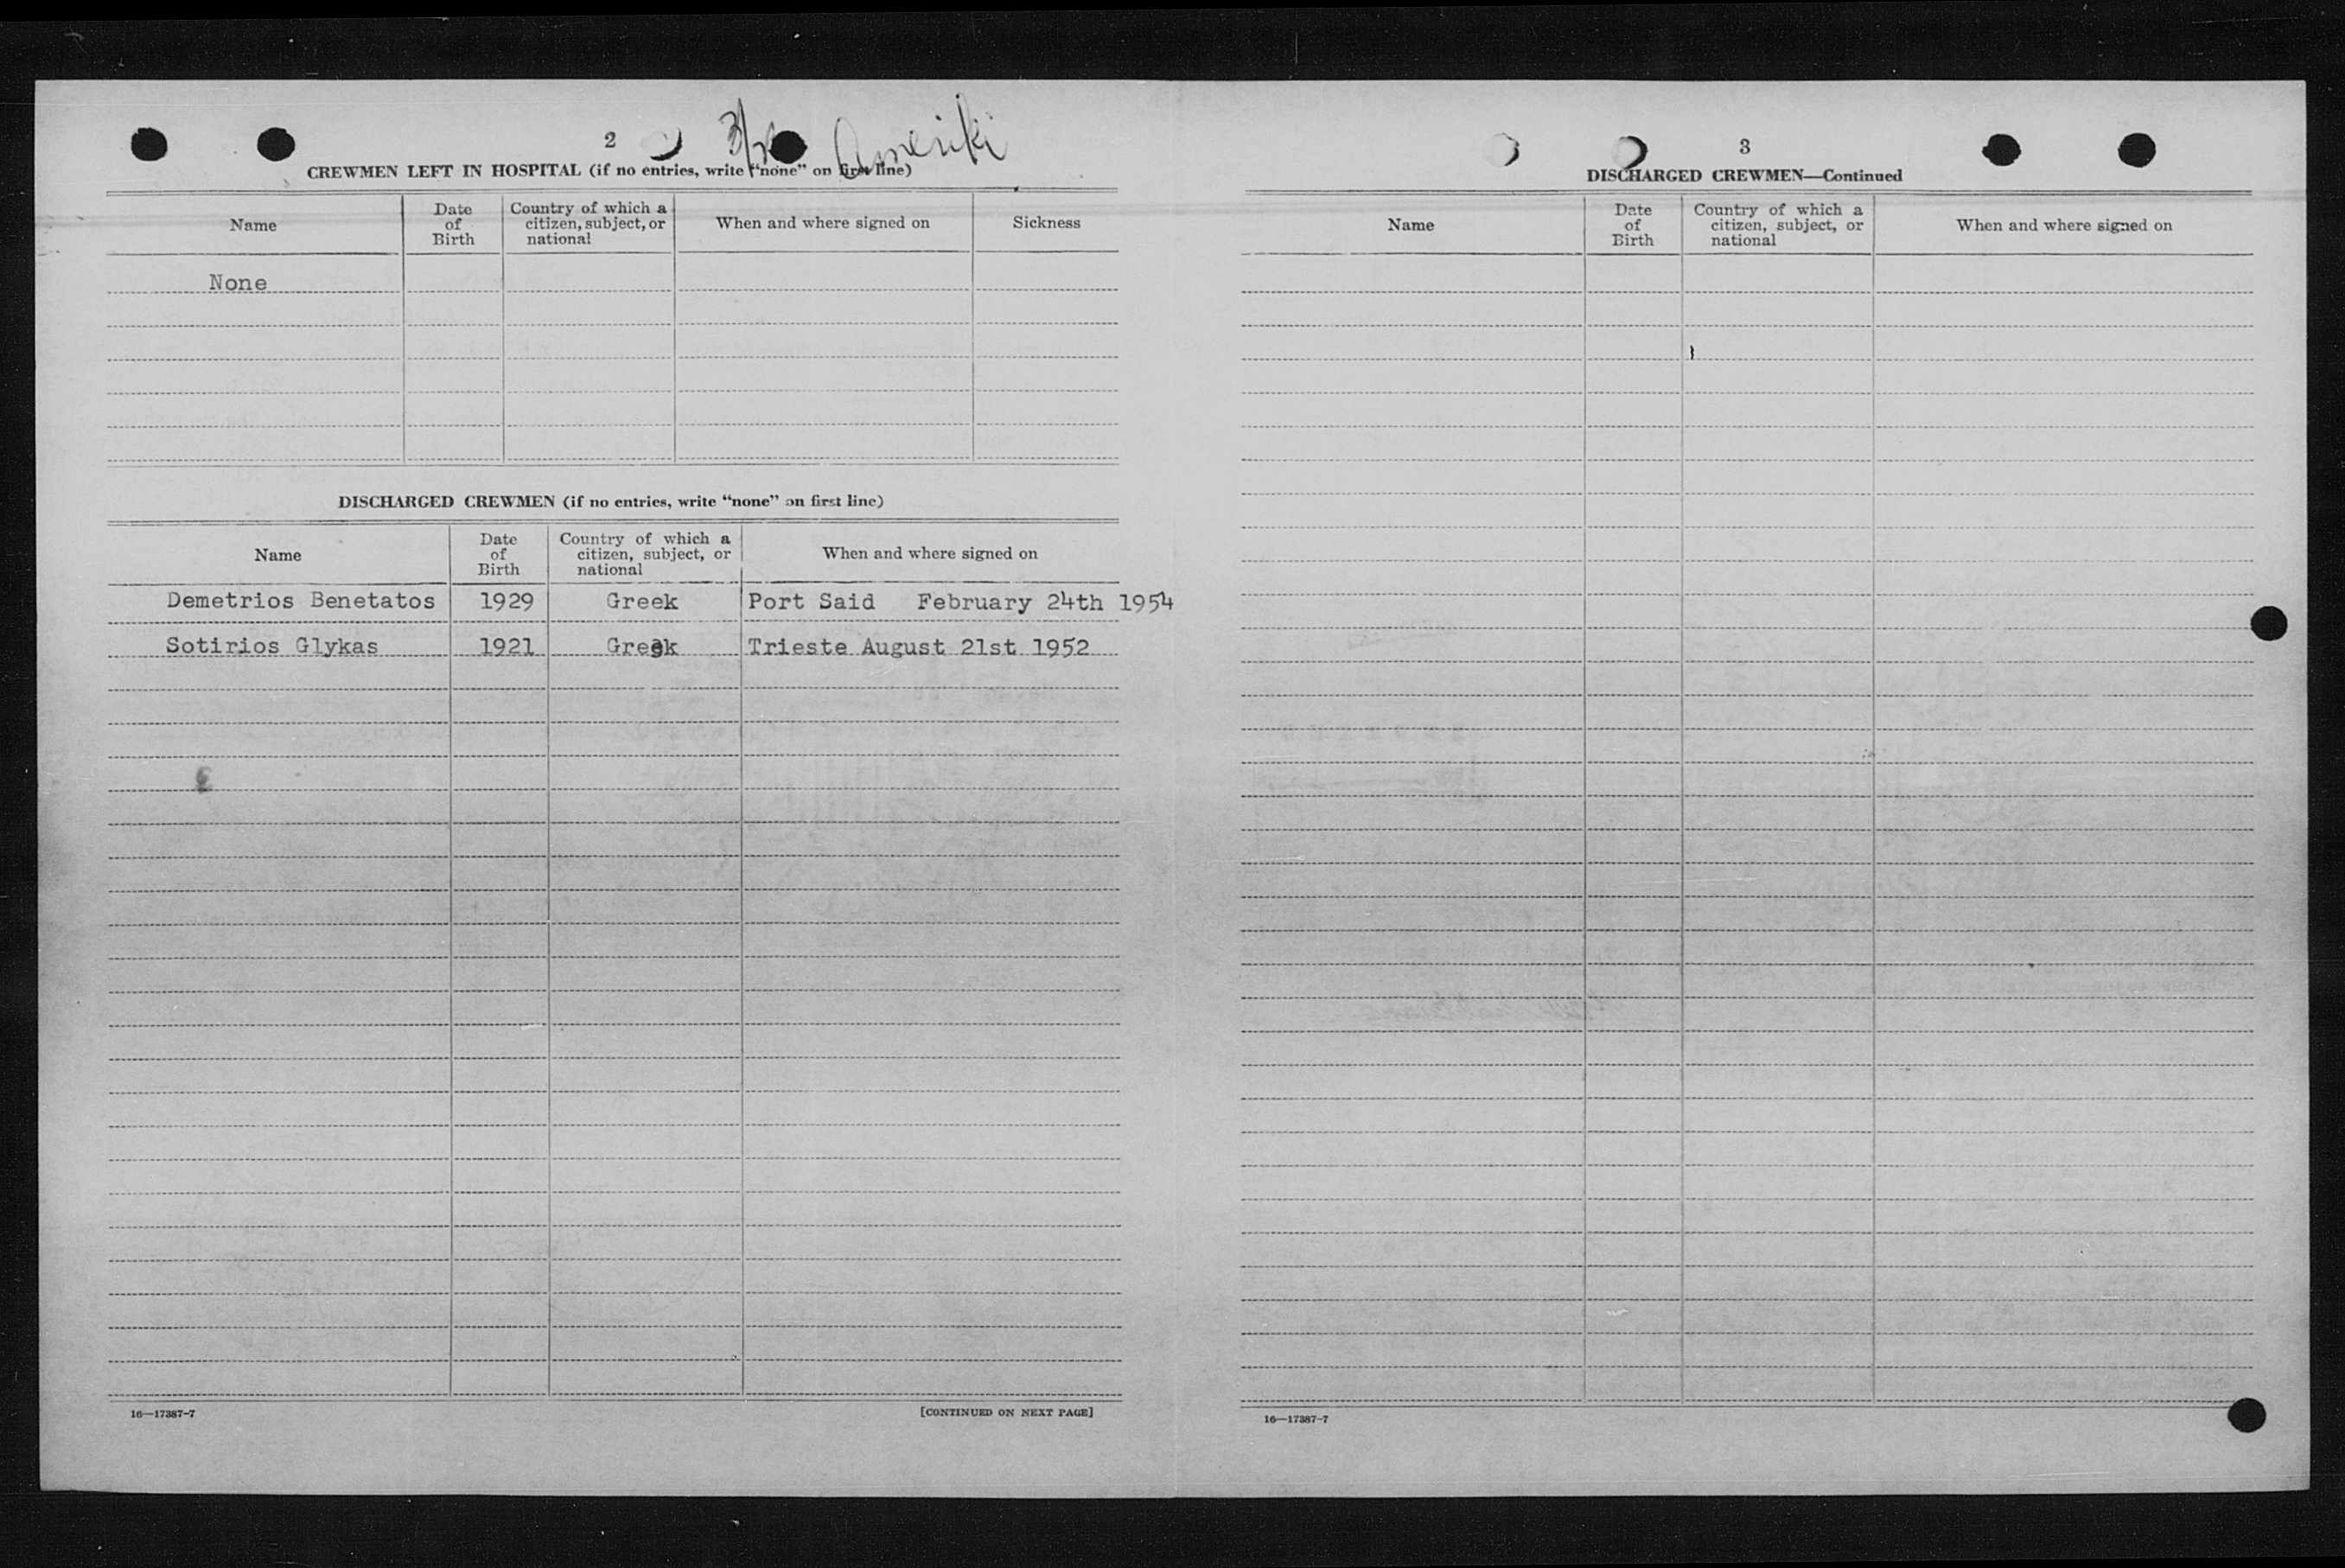 2
Ameriki
CREWMEN LEFT IN HOSPITAL (if no entries, write "none" on first line)
Name
Date of Birth
Country of which a citizen, subject, or national
When and where signed on
Sickness
None
DISCHARGED CREWMEN (if no entries, write "none" on first line)
Name
Date of Birth
Country of which a citizen, subject, or national
When and where signed on
Demetrios Benetatos 1929 Greek Port Said February 24th 1954
Sotirios Glykas 1921 Greek Trieste August 21st 1952
16—17387-7
[CONTINUED ON NEXT PAGE]
3
DISCHARGED CREWMEN—Continued
Name
Date of Birth
Country of which a citizen, subject, or national
When and where signed on
16—17387-7